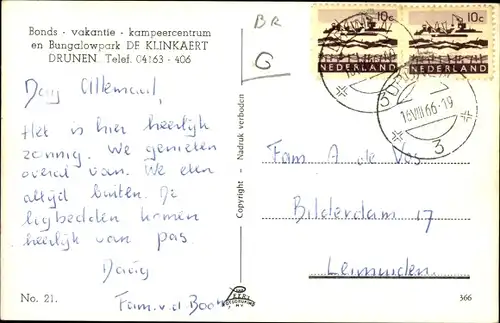 Bonds - vakantie - kampeercentrum
en Bungalowpark DE KLINKAERT
DRUNEN Telef. 04163 - 406
BR
G
10c
10c
NEDERLAND
NEDERLAND
16 VIII 66 - 19
3
3
Dag Allemaal,
Het is hier heerlijk
zonnig. We genieten
overal van. We eten
altijd buiten. De
ligbedden komen
heerlijk van pas.
Daag
Fam. v.d.
Copyright - Nadruk verboden
Fam. A de Vos
Bilderdam 17
Leimuiden.
No. 21.
366